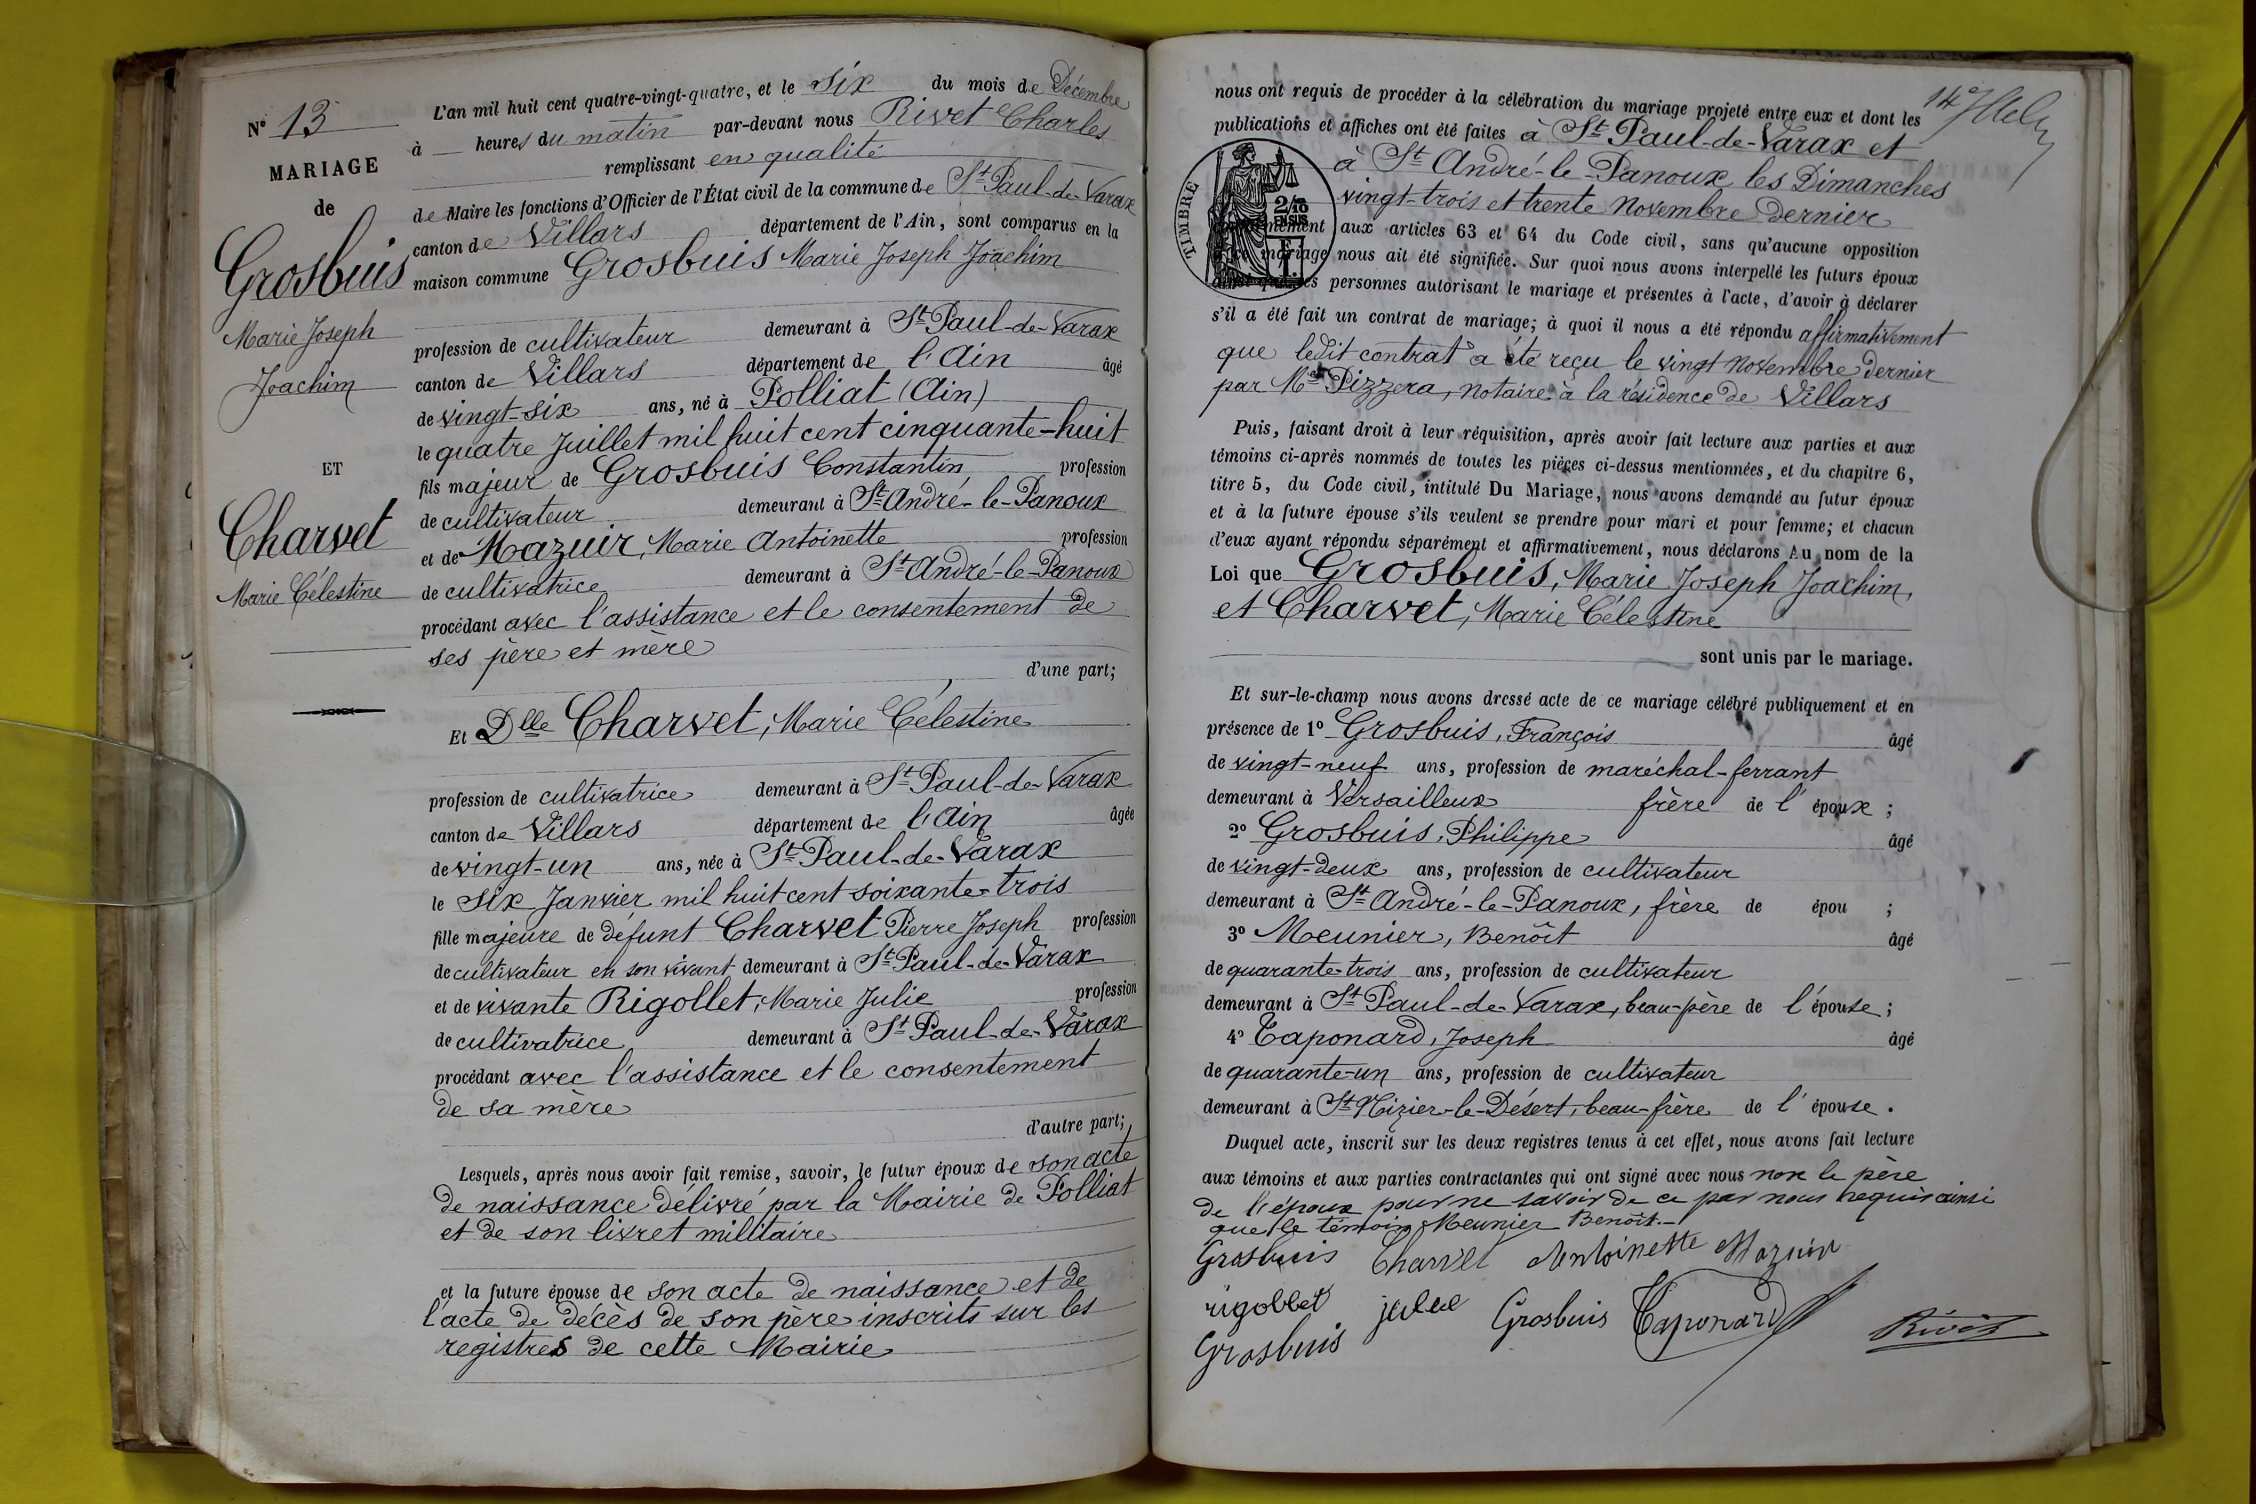 N° 13
MARIAGE
de
Grosbuis
Marie Joseph
Joachim
ET
Charvet
Marie Célestine
L'an mil huit cent quatre-vingt-quatre, et le six du mois de Décembre
à — heures du matin par-devant nous Rivet Charles
remplissant en qualité
de Maire les fonctions d'Officier de l'État civil de la commune de St Paul-de-Varax
canton de Villars département de l'Ain, sont comparus en la
maison commune Grosbuis Marie Joseph Joachim
profession de cultivateur demeurant à St Paul-de-Varax
canton de Villars département de l'Ain âgé
de vingt-six ans, né à Polliat (Ain)
le quatre Juillet mil huit cent cinquante-huit
fils majeur de Grosbuis Constantin profession
de cultivateur demeurant à St André-le-Panoux
et de Mazuir, Marie Antoinette profession
de cultivatrice demeurant à St André-le-Panoux
procédant avec l'assistance et le consentement de
ses père et mère
d'une part;
Et Dlle Charvet, Marie Célestine
profession de cultivatrice demeurant à St Paul-de-Varax
canton de Villars département de l'Ain âgée
de vingt-un ans, née à St Paul-de-Varax
le six Janvier mil huit cent soixante-trois
fille majeure de défunt Charvet Pierre Joseph profession
de cultivateur en son vivant demeurant à St Paul-de-Varax
et de vivante Rigollet, Marie Julie profession
de cultivatrice demeurant à St Paul-de-Varax
procédant avec l'assistance et le consentement
de sa mère
d'autre part;
Lesquels, après nous avoir fait remise, savoir, le futur époux de son acte
de naissance délivré par la Mairie de Polliat
et de son livret militaire
et la future épouse de son acte de naissance et de
l'acte de décès de son père inscrits sur les
registres de cette Mairie
nous ont requis de procéder à la célébration du mariage projeté entre eux et dont les
publications et affiches ont été faites à St Paul-de-Varax et
à St André-le-Panoux les Dimanches
vingt-trois et trente Novembre dernier
TIMBRE
2/10 EN SUS
aux articles 63 et 64 du Code civil, sans qu'aucune opposition
mariage nous ait été signifiée. Sur quoi nous avons interpellé les futurs époux
personnes autorisant le mariage et présentes à l'acte, d'avoir à déclarer
s'il a été fait un contrat de mariage; à quoi il nous a été répondu affirmativement
que ledit contrat a été reçu le vingt Novembre dernier
par Me Pizzera, notaire à la résidence de Villars
Puis, faisant droit à leur réquisition, après avoir fait lecture aux parties et aux
témoins ci-après nommés de toutes les pièces ci-dessus mentionnées, et du chapitre 6,
titre 5, du Code civil, intitulé Du Mariage, nous avons demandé au futur époux
et à la future épouse s'ils veulent se prendre pour mari et pour femme; et chacun
d'eux ayant répondu séparément et affirmativement, nous déclarons Au nom de la
Loi que Grosbuis, Marie Joseph Joachim,
et Charvet, Marie Célestine
sont unis par le mariage.
Et sur-le-champ nous avons dressé acte de ce mariage célébré publiquement et en
présence de 1° Grosbuis, François âgé
de vingt-neuf ans, profession de maréchal-ferrant
demeurant à Versailleux frère de l'époux ;
2° Grosbuis, Philippe âgé
de vingt-deux ans, profession de cultivateur
demeurant à St André-le-Panoux, frère de épou ;
3° Meunier, Benôit âgé
de quarante-trois ans, profession de cultivateur
demeurant à St Paul-de-Varax, beau-père de l'épouse ;
4° Taponard, Joseph âgé
de quarante-un ans, profession de cultivateur
demeurant à St Nizier-le-Désert, beau-frère de l'épouse.
Duquel acte, inscrit sur les deux registres tenus à cet effet, nous avons fait lecture
aux témoins et aux parties contractantes qui ont signé avec nous non le père
de l'époux pour ne savoir de ce par nous requis ainsi
que le témoin Meunier Benôit.
Grosbuis Charvet Antoinette Mazuir
rigollet julie Grosbuis Taponard
Grosbuis Rivet